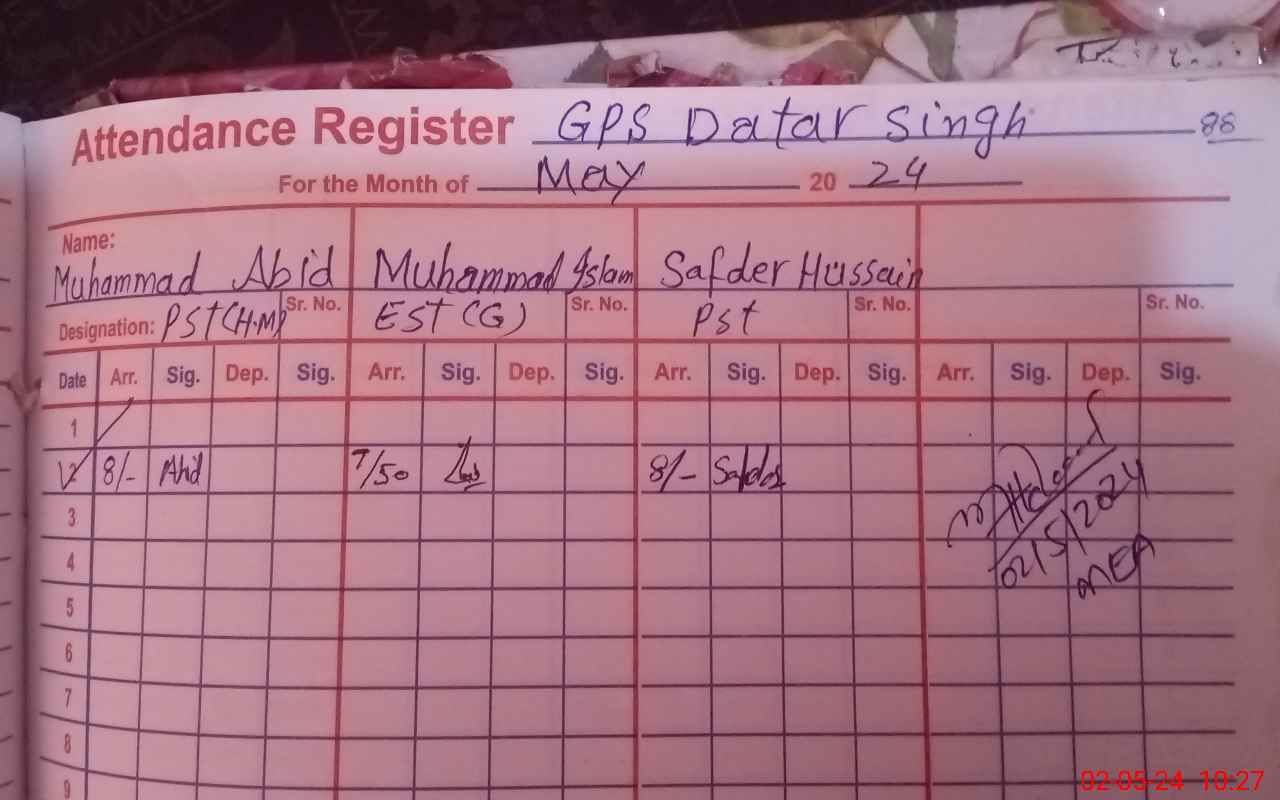 Attendance Register GPS Datar Singh 88
For the Month of May 20 24
Name:
Muhammad Abid Muhammad Islam Safder Hussain
Designation: PST (H.M) Sr. No. EST (G) Sr. No. Pst Sr. No. Sr. No.
Date Arr. Sig. Dep. Sig. Arr. Sig. Dep. Sig. Arr. Sig. Dep. Sig. Arr. Sig. Dep. Sig.
1
2 8/- Abid 7/50 8/- Safder
3
4
5
6
7
8
9
02/5/2024
MEA
02-05-24 10:27